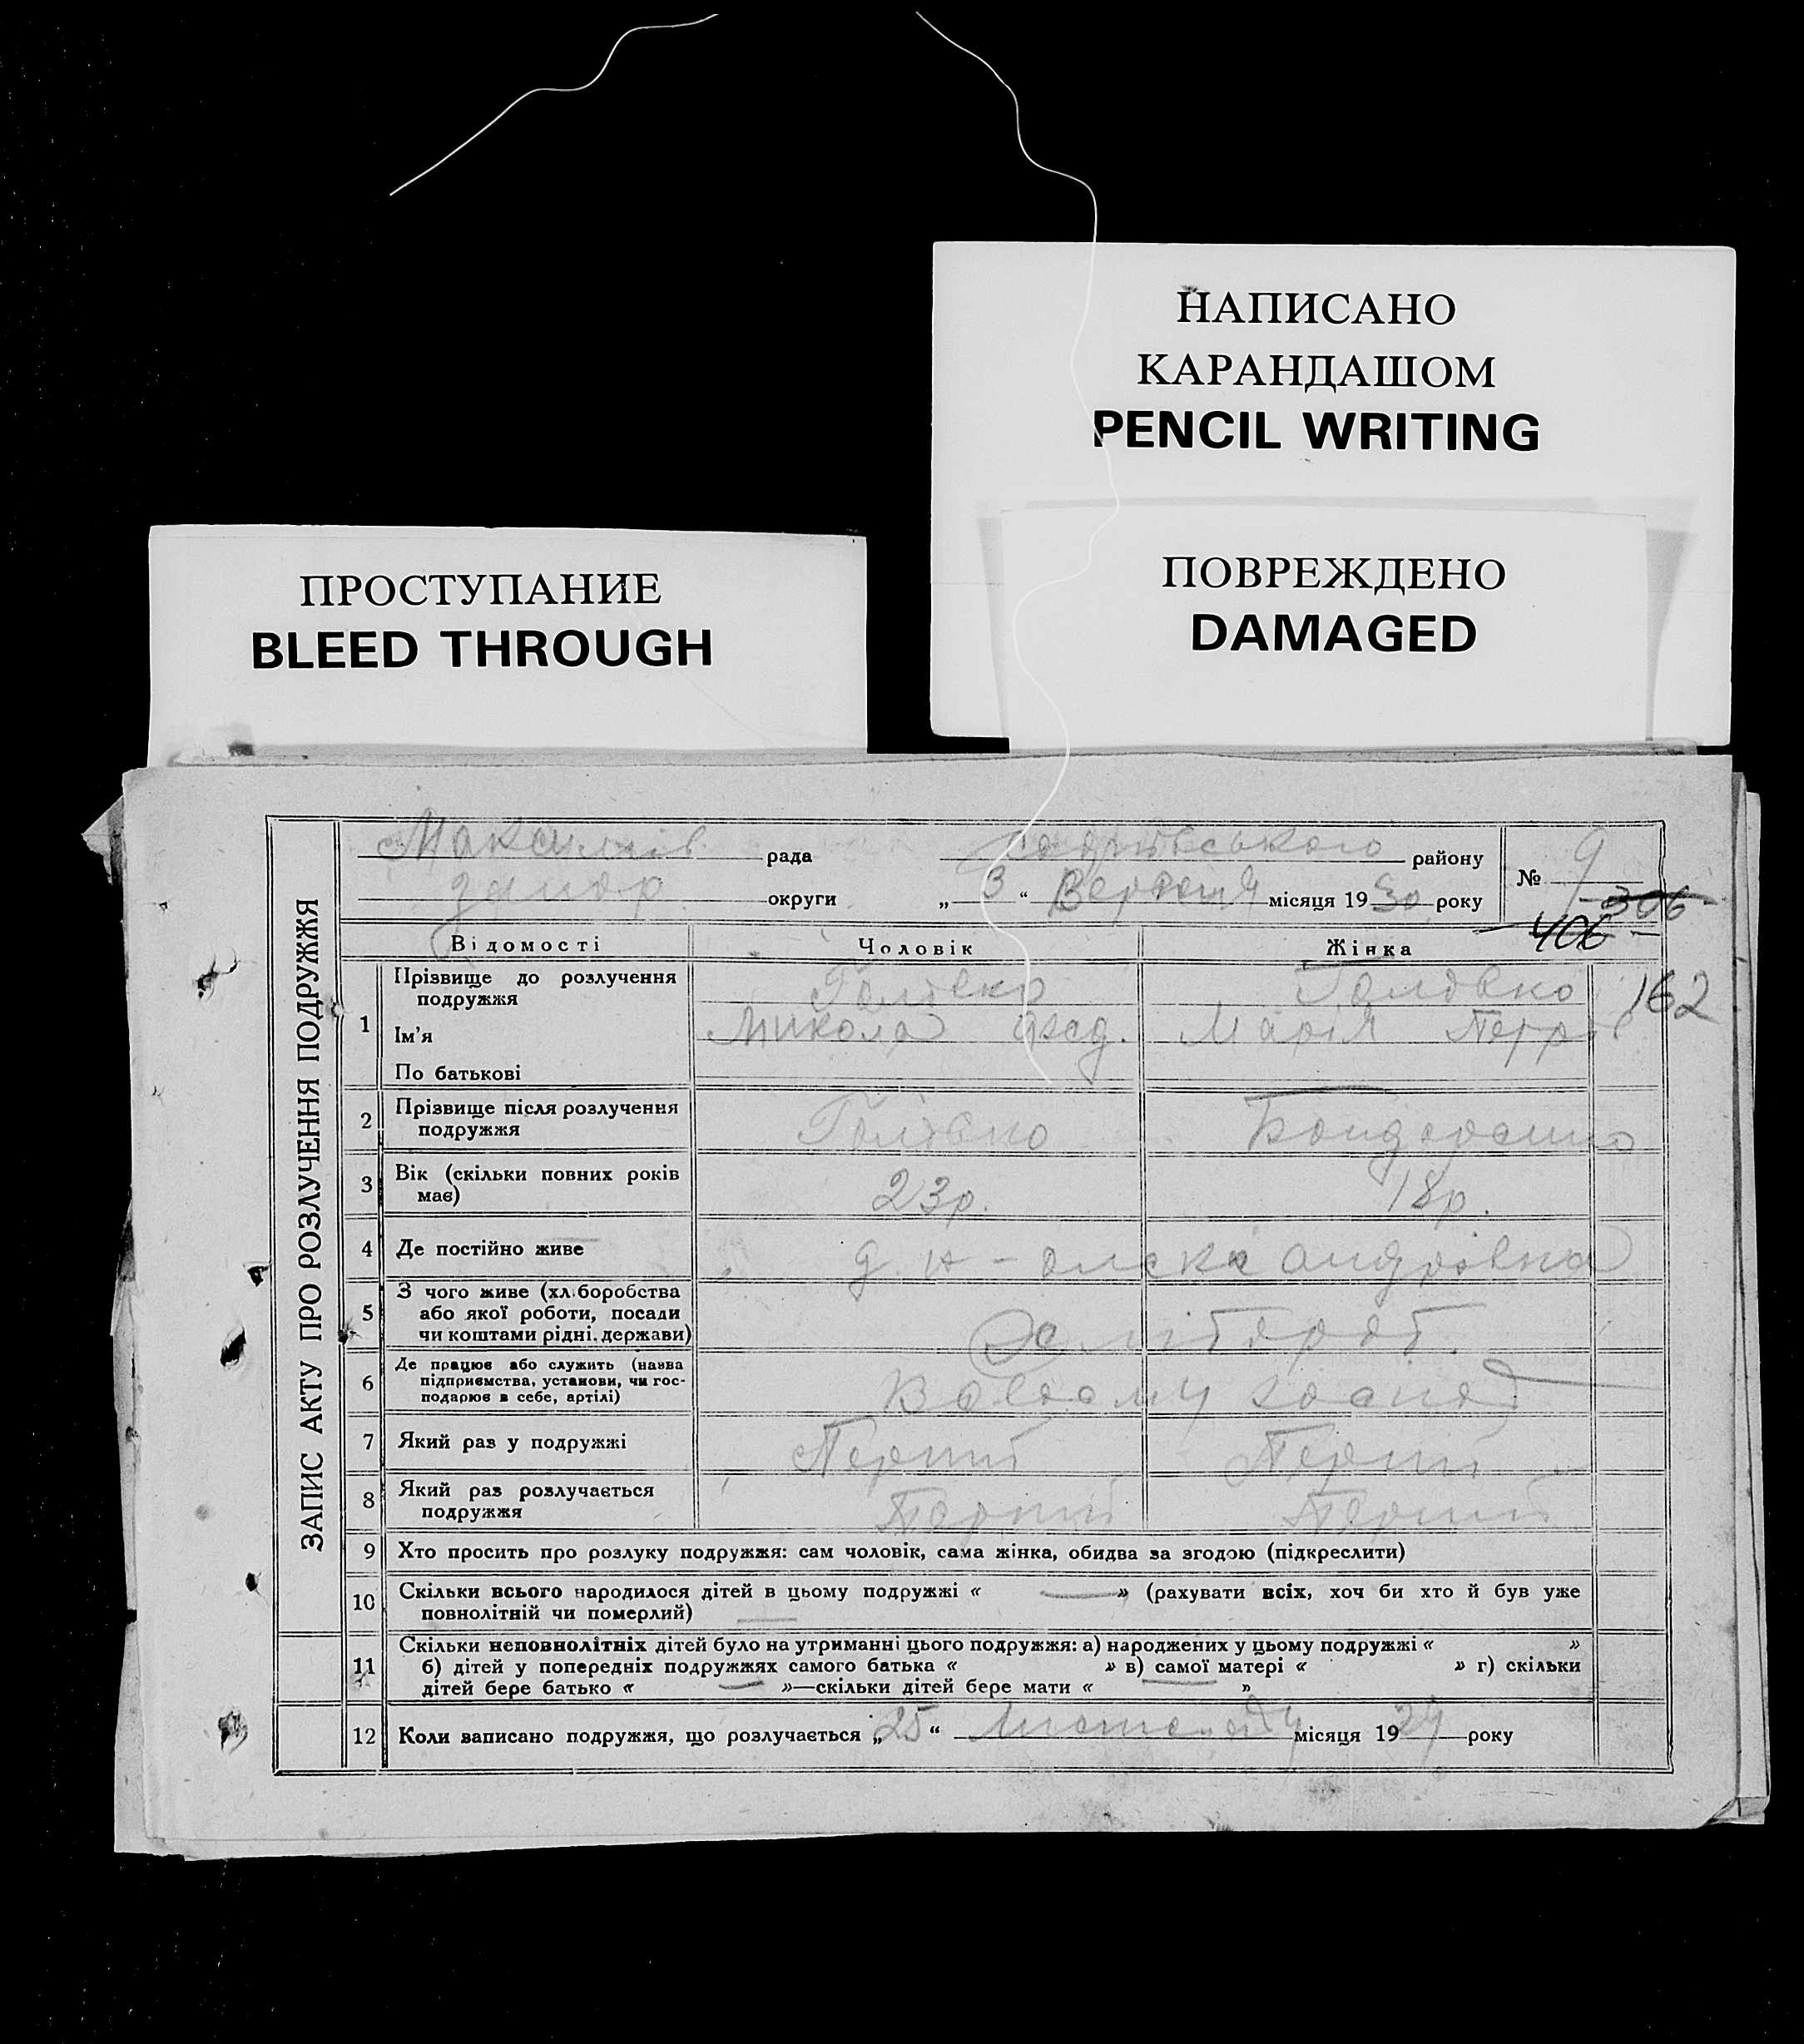 НАПИСАНО
КАРАНДАШОМ
PENCIL WRITING
ПОВРЕЖДЕНО
DAMAGED
ПРОСТУПАНИЕ
BLEED THROUGH
ЗАПИС АКТУ ПРО РОЗЛУЧЕННЯ ПОДРУЖЖЯ
рада району № 9
округи „ 3 “ Вересня місяця 19 30 року
306
406
Відомості Чоловік Жінка
162
1 Прізвище до розлучення подружжя
Ім’я Микола Марія Петрів
По батькові
2 Прізвище після розлучення подружжя
3 Вік (скільки повних років має) 23р. 18р.
4 Де постійно живе
5 З чого живе (хл.боробства або якої роботи, посади чи коштами рідні. держави)
6 Де працює або служить (назва підприємства, установи, чи господарює в себе, артілі)
7 Який раз у подружжі Перший Перший
8 Який раз розлучається подружжя Перший Перший
9 Хто просить про розлуку подружжя: сам чоловік, сама жінка, обидва за згодою (підкреслити)
10 Скільки всього народилося дітей в цьому подружжі « — » (рахувати всіх, хоч би хто й був уже
повнолітній чи померлий) —
11 Скільки неповнолітніх дітей було на утриманні цього подружжя: а) народжених у цьому подружжі « »
б) дітей у попередніх подружжях самого батька « » в) самої матері « » г) скільки
дітей бере батько « — »—скільки дітей бере мати « — »
12 Коли записано подружжя, що розлучається „ 25 “ Листопаду місяця 19 29 року